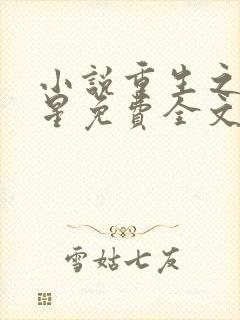 小説重生之
星免費全文
雪姑七友